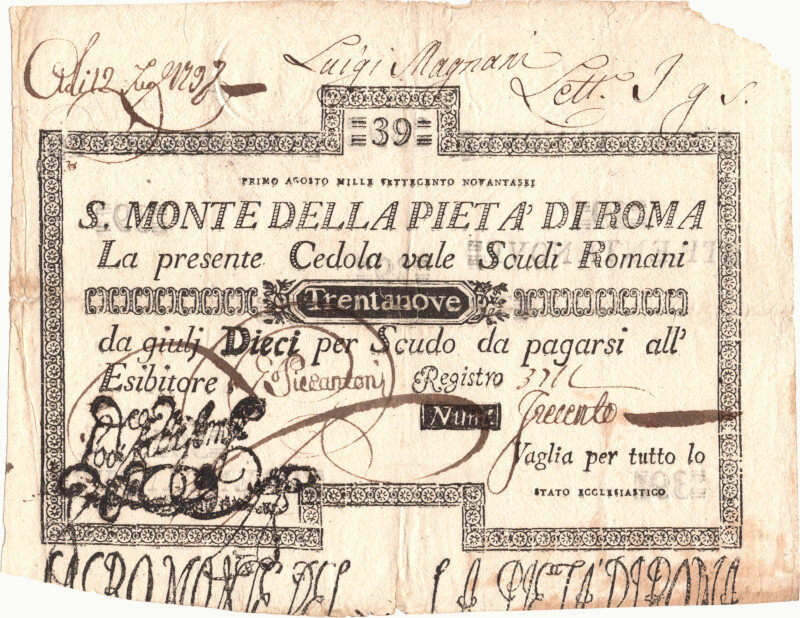 Adi 12 Lug° 1797
Luigi Magnani
Lett. J g s.
39
PRIMO AGOSTO MILLE SETTECENTO NOVANTASEI
S. MONTE DELLA PIETA' DI ROMA
La presente Cedola vale Scudi Romani
Trentanove
da giulj Dieci per Scudo da pagarsi all'
Esibitore Pierantoni Registro
Num. Trecento
Vaglia per tutto lo
STATO ECCLESIASTICO
SACRO MONTE DEL LA PIETA' DI ROMA